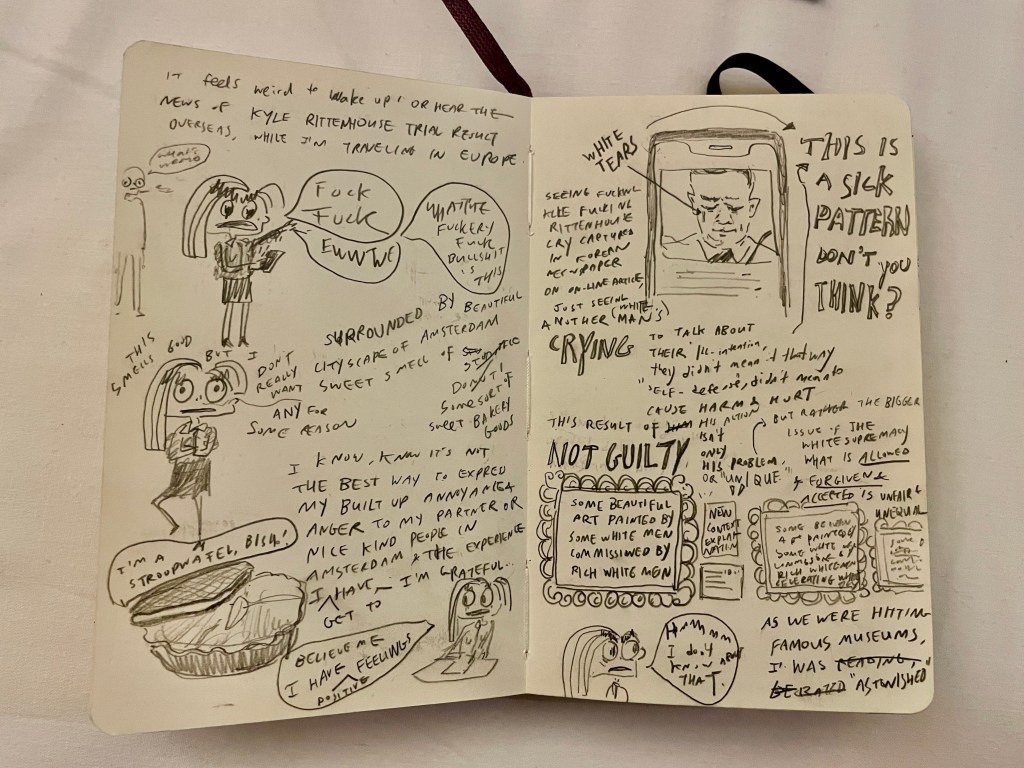 IT feels weird to wake up / OR HEAR THE
NEWS OF KYLE RITTENHOUSE TRIAL RESULT
OVERSEAS, WHILE I'M TRAVELING IN EUROPE
WHAT'S
FUCK
FUCK
EWWWE
WHAT THE
FUCKERY
FUCK
BULLSHIT
IS
THIS
THIS
SMELLS GOOD
BUT I
DON'T
REALLY
WANT
ANY FOR
SOME REASON
SURROUNDED BY BEAUTIFUL
CITYSCAPE OF AMSTERDAM
SWEET SMELL OF
DONUT/
SOME SORT OF
SWEET BAKERY
GOODS
I KNOW, KNOW IT'S NOT
THE BEST WAY TO EXPRED
MY BUILT UP ANNOYANCE &
ANGER TO MY PARTNER OR
NICE KIND PEOPLE IN
AMSTERDAM & THE EXPERIENCE
I HAVE – I'M GRATEFUL...
GET TO
I'M A
STROOPWAFEL, BISH!
BELIEVE ME
I HAVE FEELINGS
POSITIVE
WHITE
TEARS
SEEING FUCKING
RITTENHOUSE
CRY CAPTURED
IN KOREAN
NEWSPAPER
ON ON-LINE ARTICLE
JUST SEEING
ANOTHER (WHITE) MAN'S
CRYING
THIS IS
A SICK
PATTERN
DON'T YOU
THINK?
TO TALK ABOUT
THEIR Ill-intention,
they didn't mean it that way
"SELF-defense, didn't mean to
CAUSE HARM & HURT
THIS RESULT OF HIS ACTION
NOT GUILTY
ISN'T
ONLY
HIS PROBLEM,
OR "UNIQUE"
BUT RATHER THE BIGGER
ISSUE OF THE
WHITE SUPREMACY
WHAT IS ALLOWED
& FORGIVEN &
ACCEPTED IS UNFAIR &
UNEQUAL
SOME BEAUTIFUL
ART PAINTED BY
SOME WHITE MEN
COMMISSIONED BY
RICH WHITE MEN
NEW
CONTEXT
EXPLAI
NATION
SOME
PAINTED
SOME WHITE
RICH WHITE MEN
HMMMM
I don't
KNOW ABOUT
THAT.
AS WE WERE HITTING
FAMOUS MUSEUMS,
I WAS READING,
"ASTONISHED"